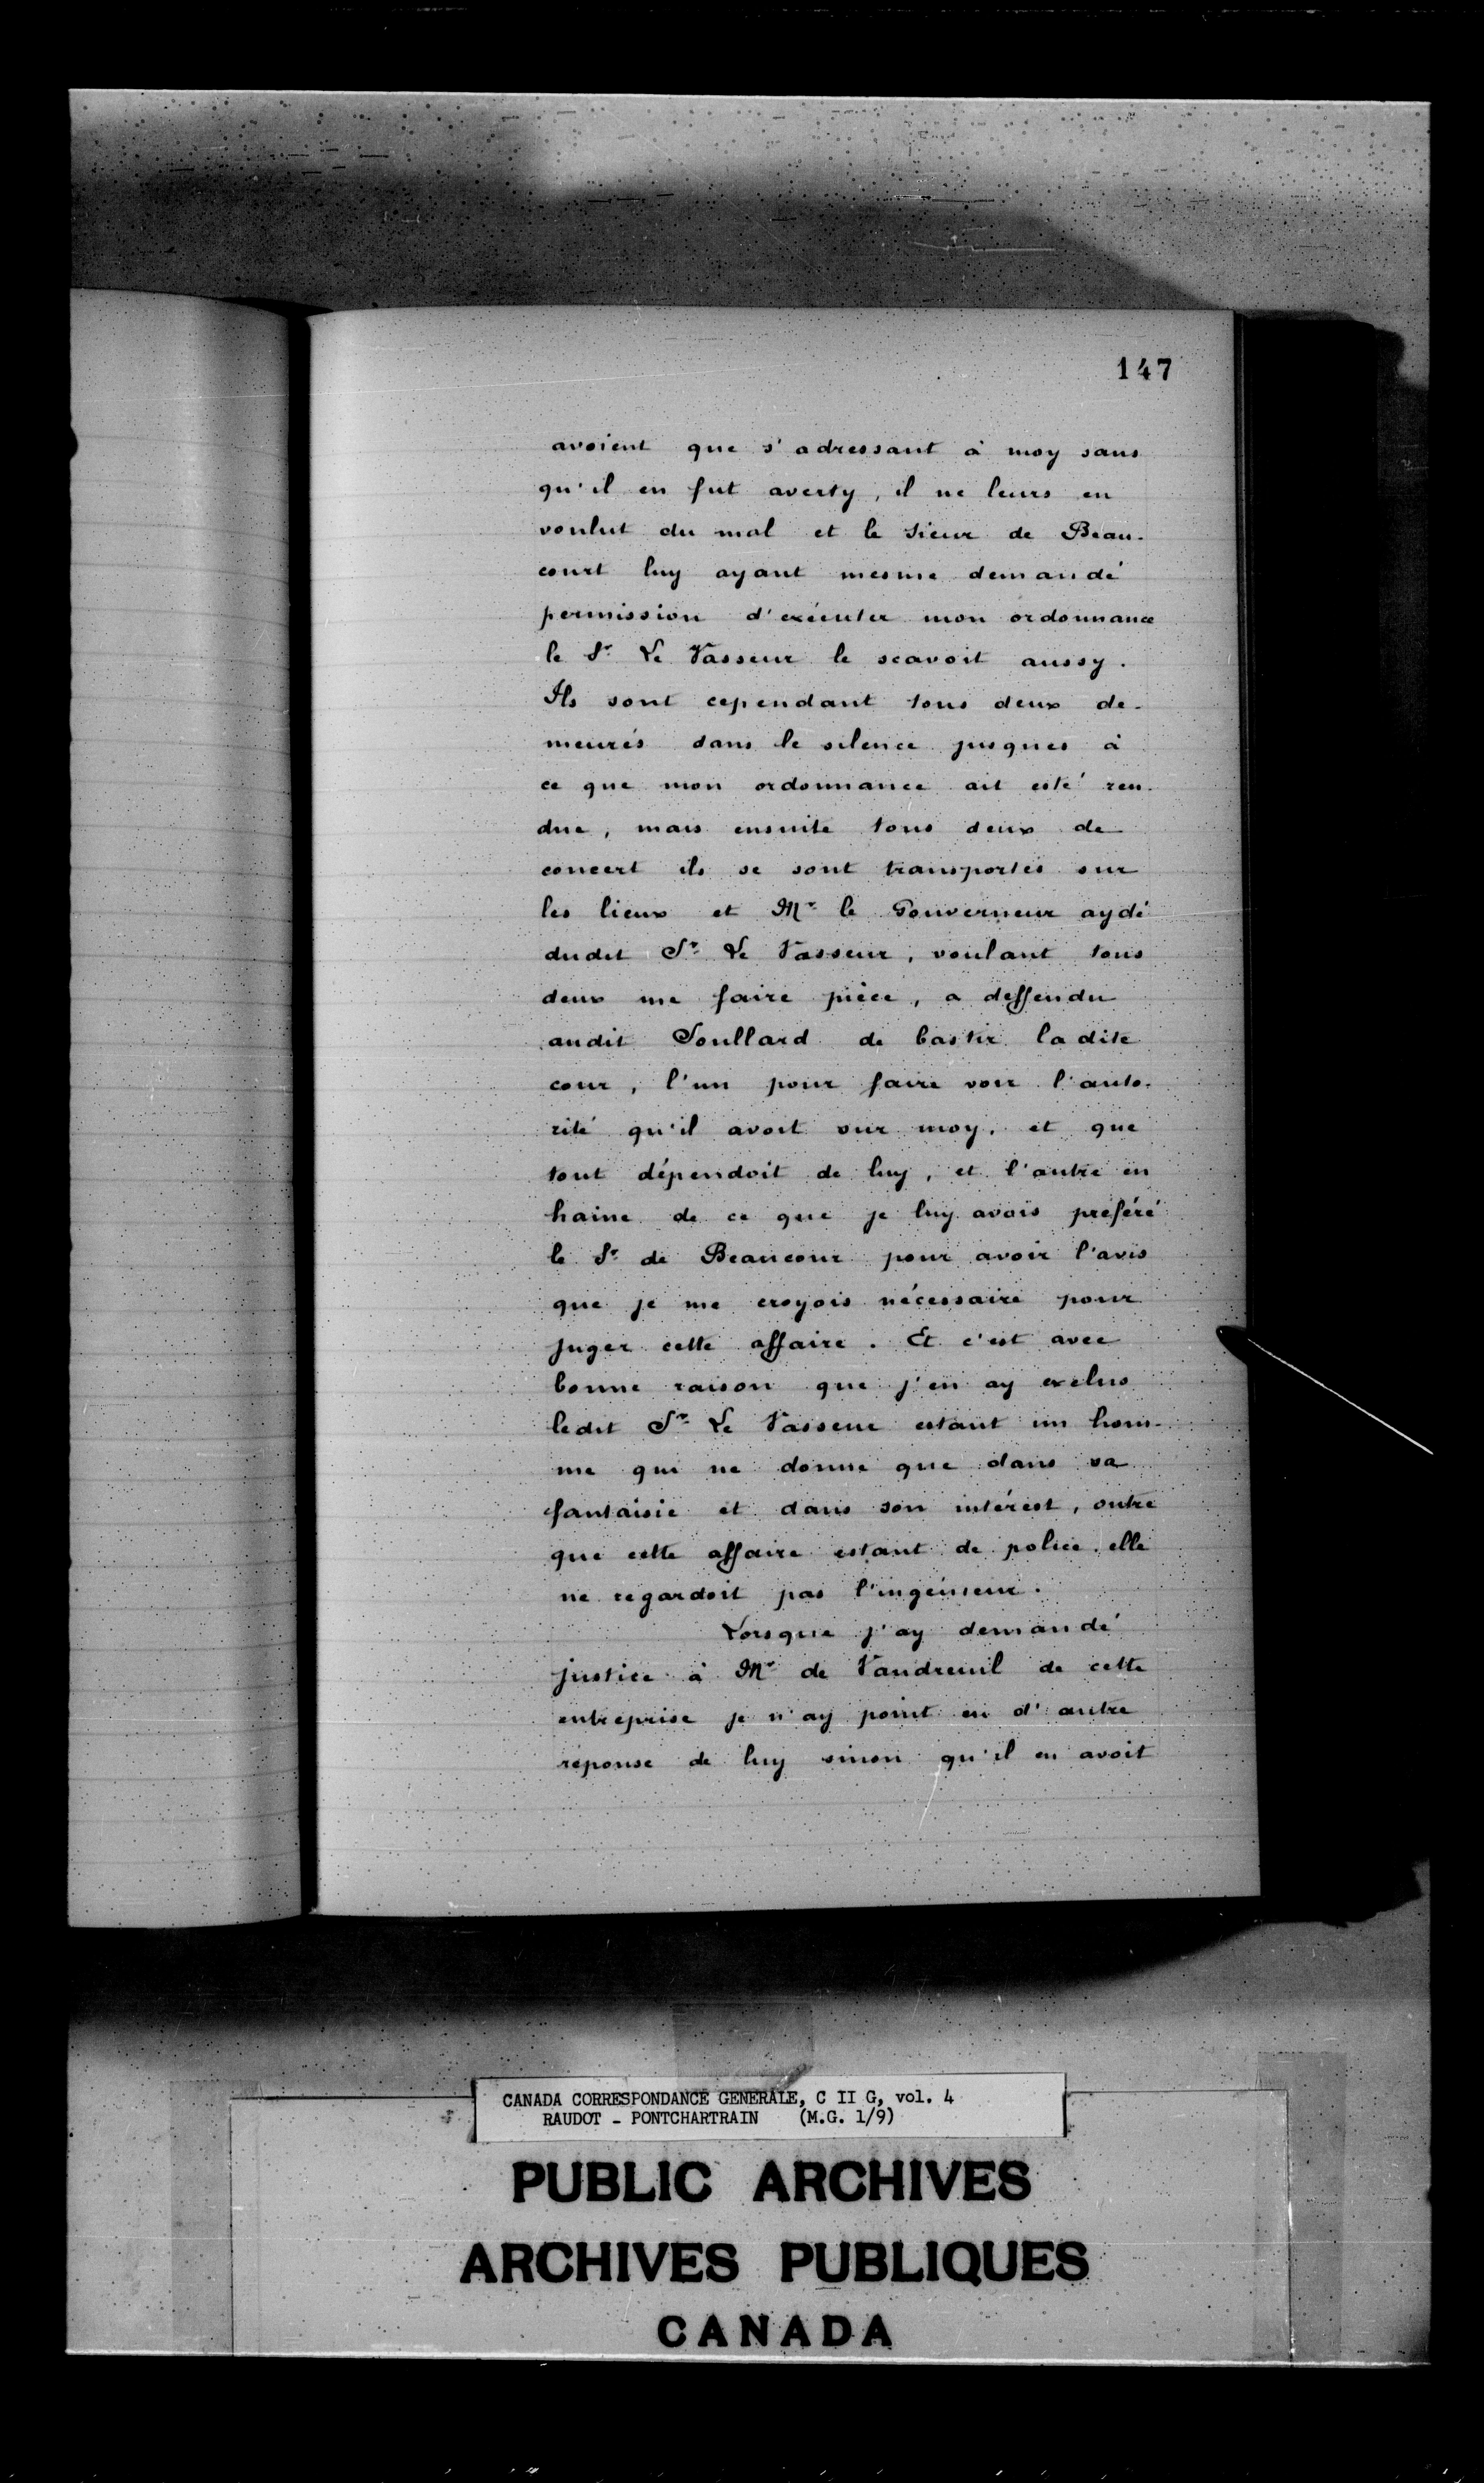 147
avoient que s'adressant à moy sans
qu'il en fut averty, il ne leurs en
voulut du mal et le sieur de Beau-
court luy ayant mesme demandé
permission d'exécuter mon ordonnance
le Sr Le Vasseur le scavoit aussy.
Ils sont cependant tous deux de-
meurés dans le silence jusques à
ce que mon ordonnance ait esté ren-
due, mais ensuite tous deux de
concert ils se sont transportés sur
les lieux et Mr le Gouverneur aydé
dudit Sr Le Vasseur, voulant tous
deux me faire pièce, a deffendu
audit Soullard de bastir la dite
cour, l'un pour faire voir l'auto-
rité qu'il avoit sur moy, et que
tout dépendoit de luy, et l'autre en
haine de ce que je luy avois préféré
le Sr de Beaucour pour avoir l'avis
que je me croyois nécessaire pour
juger cette affaire. Et c'est avec
bonne raison que j'en ay exclus
ledit Sr Le Vasseur estant un hom-
me qui ne donne que dans sa
fantaisie et dans son intérest, outre
que cette affaire estant de police elle
ne regardoit pas l'ingénieur.
Lorsque j'ay demandé
justice à Mr de Vaudreuil de cette
entreprise je n'ay point eu d'autre
réponse de luy sinon qu'il en avoit
CANADA CORRESPONDANCE GENERALE, C II G, vol. 4
RAUDOT - PONTCHARTRAIN (M.G. 1/9)
PUBLIC ARCHIVES
ARCHIVES PUBLIQUES
CANADA